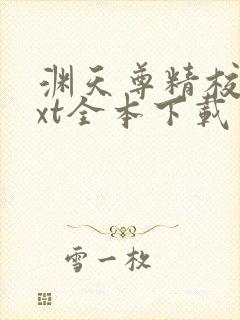 渊天尊精校
xt全本下载
雪一枚